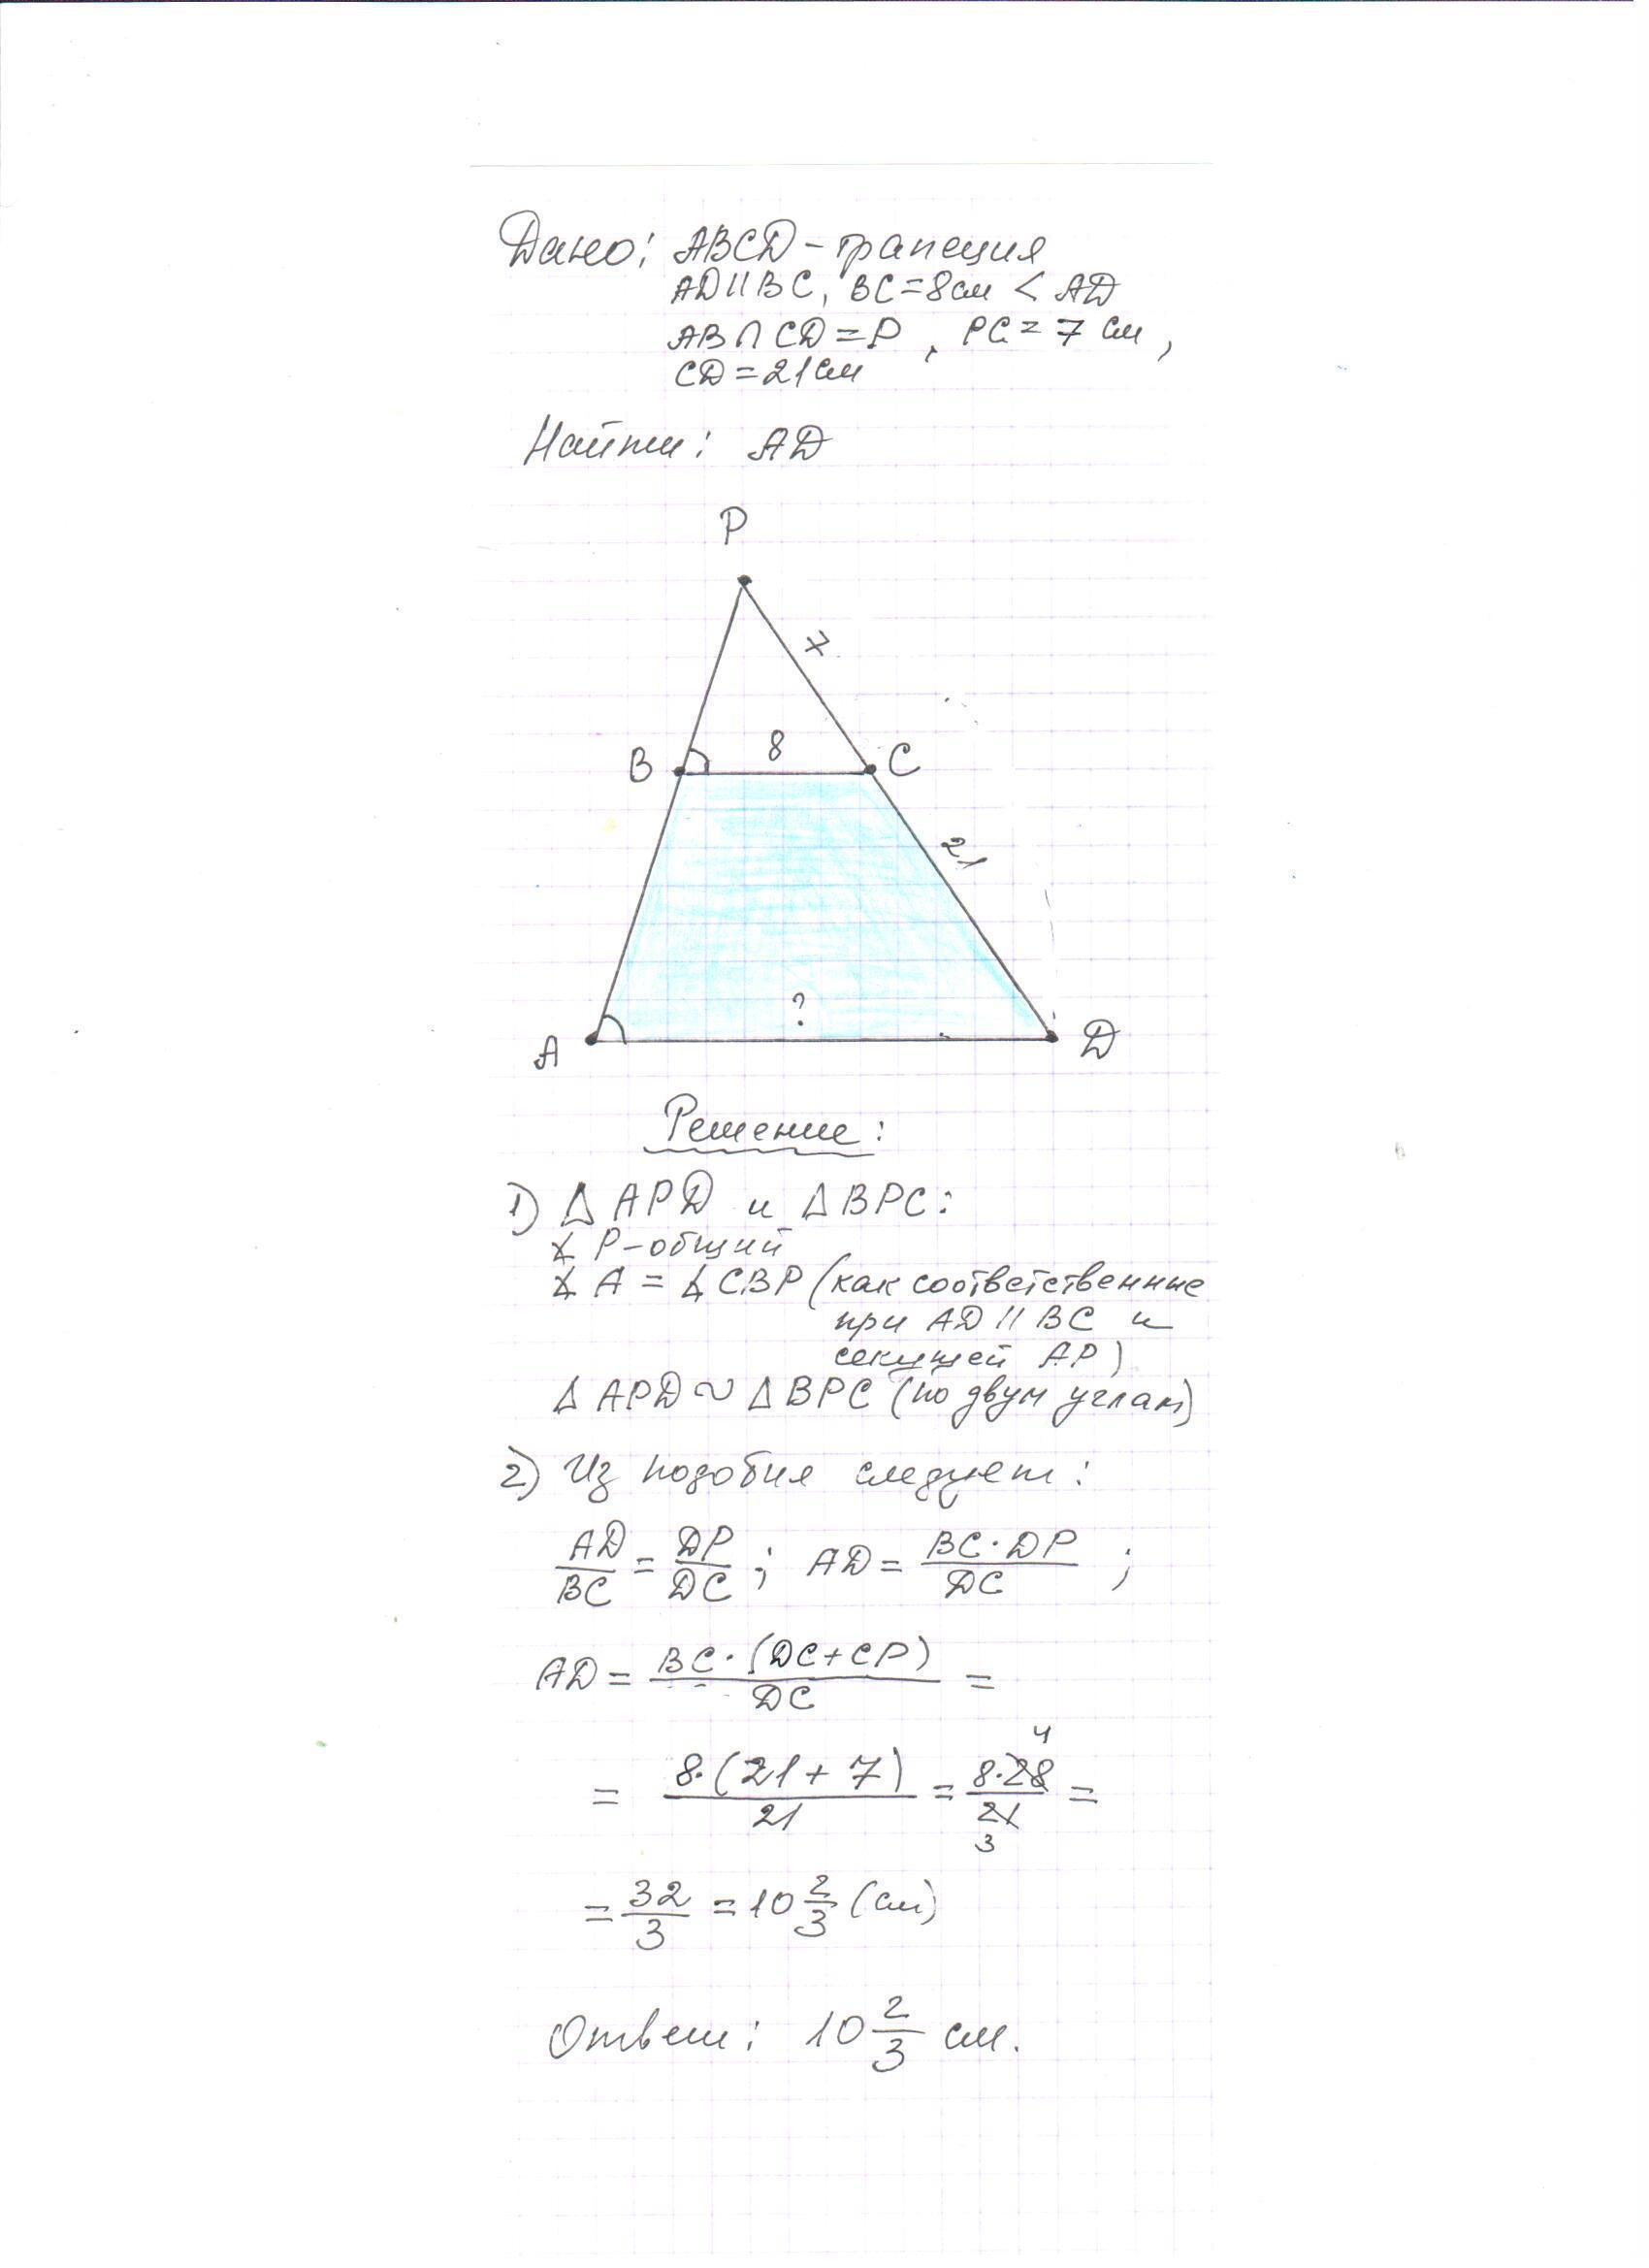 Дано: ABCD - трапеция
AD || BC, BC = 8 см < AD
AB ∩ CD = P, PC = 7 см,
CD = 21 см
Найти: AD
P
7
B 8 C
21
?
A D
Решение:
1) Δ APD и Δ BPC:
∡ P - общий
∡ A = ∡ CBP (как соответственные
при AD || BC и
секущей AP)
Δ APD ~ Δ BPC (по двум углам)
2) Из подобия следует:
AD/BC = DP/DC; AD = BC·DP/DC ;
AD = BC·(DC+CP)/DC =
4
= 8·(21+7)/21 = 8·28/21 =
3
= 32/3 = 10 2/3 (см)
Ответ: 10 2/3 см.